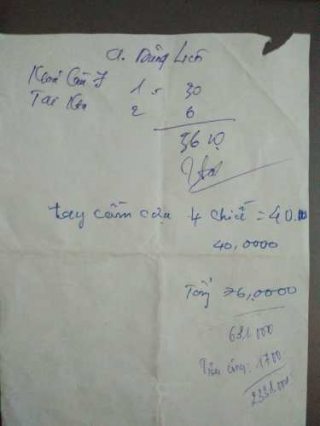 a. Dũng Lịch
1 = 30
Tai 2 6
36
tay cầm cửa 4 chiếc = 40.
40,0000
Tổng 76,0000
631.000
Tiền công: 1700
2331.000